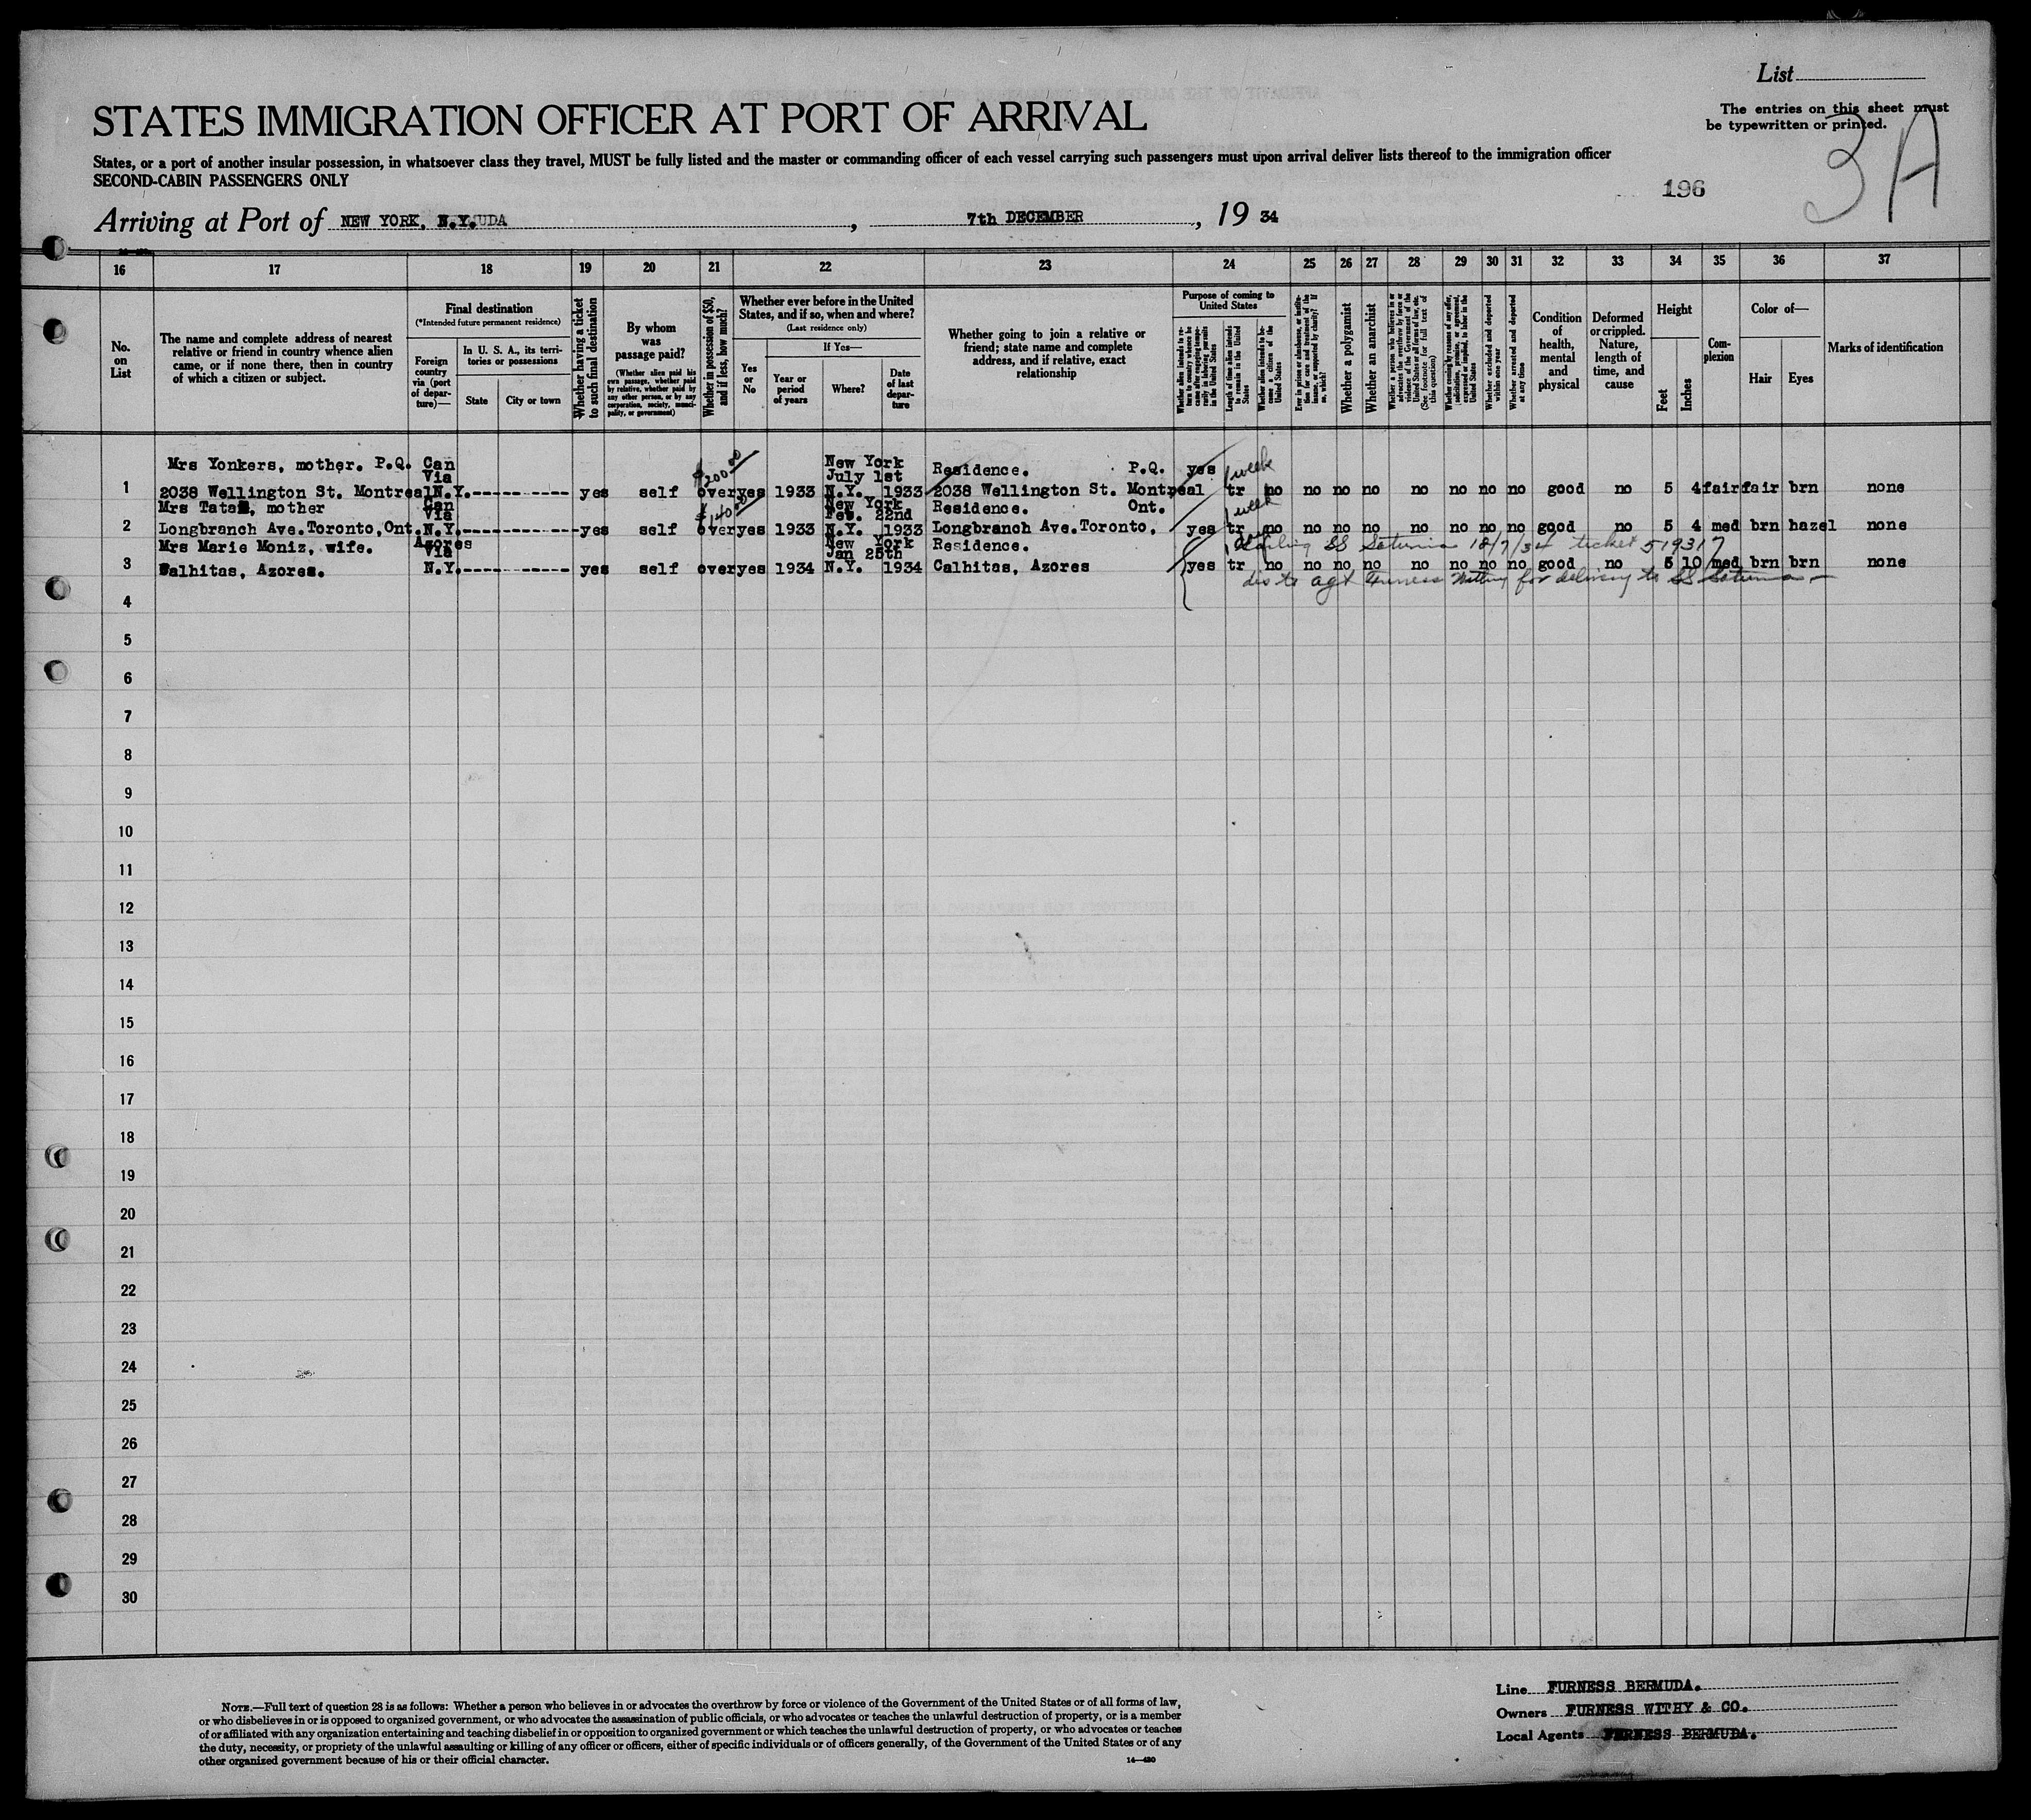 List
STATES IMMIGRATION OFFICER AT PORT OF ARRIVAL
The entries on this sheet must
be typewritten or printed.
3A
States, or a port of another insular possession, in whatsoever class they travel, MUST be fully listed and the master or commanding officer of each vessel carrying such passengers must upon arrival deliver lists thereof to the immigration officer
SECOND-CABIN PASSENGERS ONLY
196
Arriving at Port of NEW YORK, N.Y. UDA, 7th DECEMBER, 19 34
16 17 18 19 20 21 22 23 24 25 26 27 28 29 30 31 32 33 34 35 36 37
No. on List
The name and complete address of nearest relative or friend in country whence alien came, or if none there, then in country of which a citizen or subject.
Final destination
(*Intended future permanent residence)
Foreign country via (port of departure)—
In U. S. A., its territories or possessions
State
City or town
Whether having a ticket to such final destination
By whom was passage paid?
(Whether alien paid his own passage, whether paid by relative, whether paid by any other person, or by any corporation, society, municipality, or government)
Whether in possession of $50, and if less, how much?
Whether ever before in the United States, and if so, when and where?
(Last residence only)
Yes or No
If Yes—
Year or period of years
Where?
Date of last departure
Whether going to join a relative or friend; state name and complete address, and if relative, exact relationship
Purpose of coming to United States
Whether alien intends to return to country whence he came after engaging temporarily in laboring pursuits in the United States
Length of time alien intends to remain in the United States
Whether alien intends to become a citizen of the United States
Ever in prison or almshouse, or institution for care and treatment of the insane, or supported by charity? If so, which?
Whether a polygamist
Whether an anarchist
Whether a person who believes in or advocates the overthrow by force or violence of the Government of the United States or all forms of law, etc. (See footnote for full text of this question)
Whether coming by reason of any offer, solicitation, promise, or agreement, expressed or implied, to labor in the United States
Whether excluded and deported within one year
Whether arrested and deported at any time
Condition of health, mental and physical
Deformed or crippled. Nature, length of time, and cause
Height
Feet
Inches
Complexion
Color of—
Hair
Eyes
Marks of identification
Mrs Yonkers, mother. P.Q. Can Via $200.00 New York July 1st Residence. P.Q. yes 1 week
1 2038 Wellington St. Montreal N.Y.----------- yes self over yes 1933 N.Y. 1933 2038 Wellington St. Montreal tr no no no no no no no no good no 5 4 fair fair brn none
Mrs Tata, mother Can Via $140.00 New York Feb. 22nd Residence. Ont. 1 week
2 Longbranch Ave.Toronto,Ont. N.Y.-----------yes self over yes 1933 N.Y. 1933 Longbranch Ave.Toronto, yes tr no no no no no no no no good no 5 4 med brn hazel none
Mrs Marie Moniz, wife. Azores Via New York Jan 25th Residence. Sailing SS Saturnia 18/7/34 ticket 519317
3 Calhitas, Azores. N.Y.----------- yes self over yes 1934 N.Y. 1934 Calhitas, Azores yes tr no no no no no no no no good no 5 10 med brn brn none
dis to agt Furness for delivery to SS Saturnia
4
5
6
7
8
9
10
11
12
13
14
15
16
17
18
19
20
21
22
23
24
25
26
27
28
29
30
NOTE.—Full text of question 28 is as follows: Whether a person who believes in or advocates the overthrow by force or violence of the Government of the United States or of all forms of law,
or who disbelieves in or is opposed to organized government, or who advocates the assassination of public officials, or who advocates or teaches the unlawful destruction of property, or is a member
of or affiliated with any organization entertaining and teaching disbelief in or opposition to organized government or which teaches the unlawful destruction of property, or who advocates or teaches
the duty, necessity, or propriety of the unlawful assaulting or killing of any officer or officers, either of specific individuals or of officers generally, of the Government of the United States or of any
other organized government because of his or their official character.
14—430
Line FURNESS BERMUDA.
Owners FURNESS WITHY & CO.
Local Agents FURNESS BERMUDA.